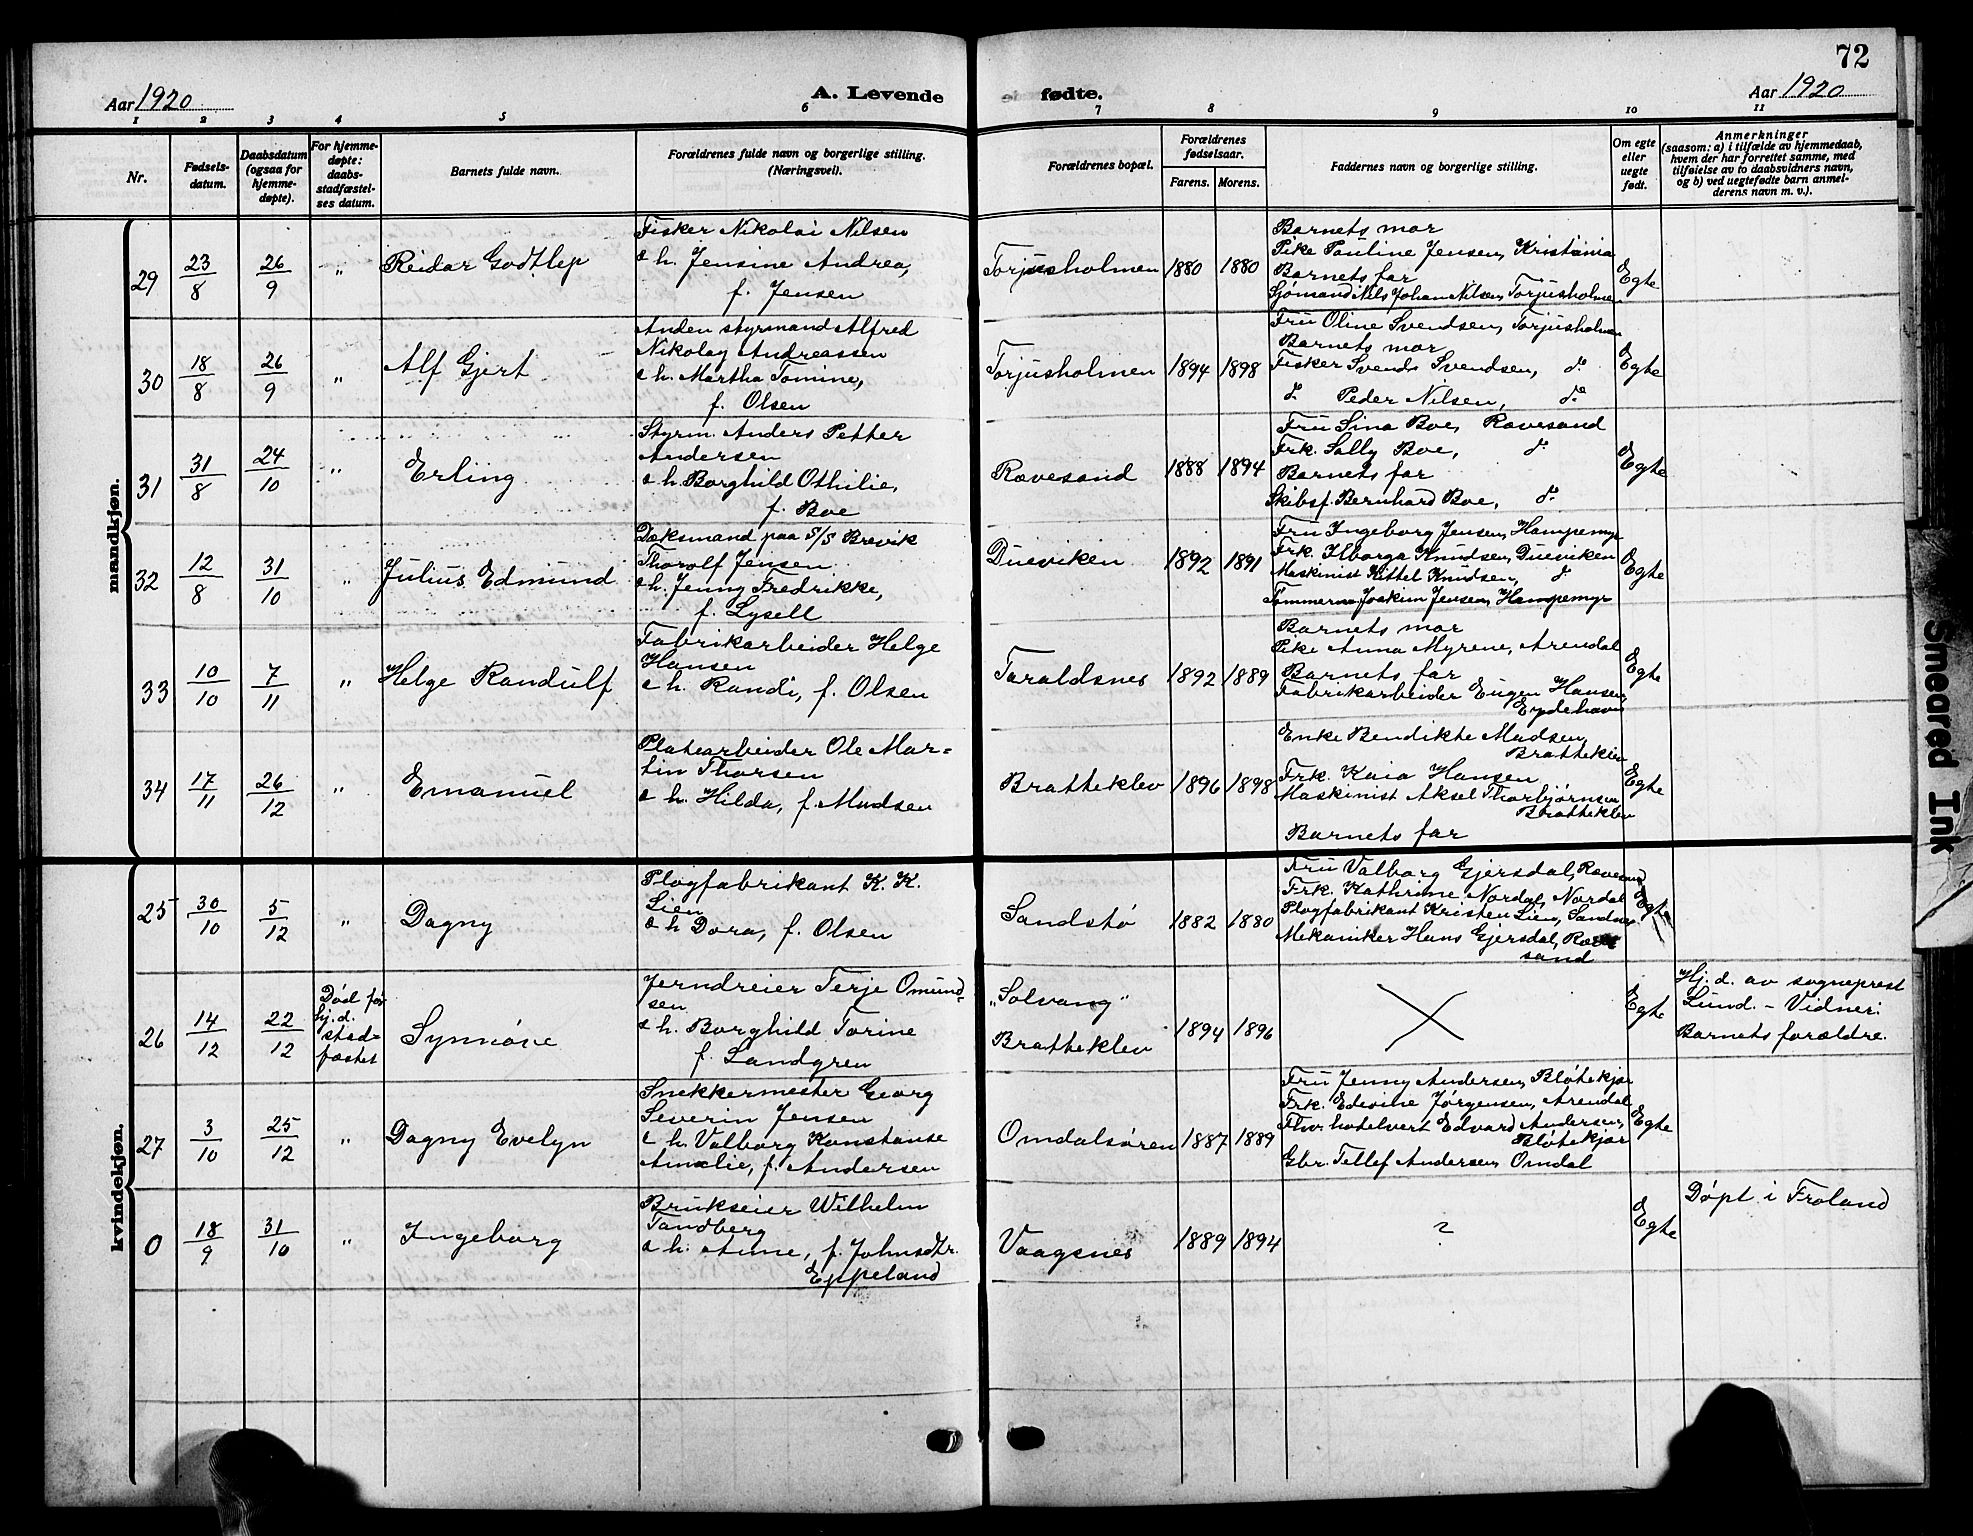 72
Aar 1920
A. Levende
fødte.
Aar 1920
1 2 3 4 5 6 7 8 9 10 11
Nr.
Fødsels-
datum.
Daabsdatum
(ogsaa for
hjemme-
døpte).
For hjemme-
døpte:
daabs-
stadfæstel-
ses datum.
Barnets fulde navn.
Forældrenes fulde navn og borgerlige stilling.
(Næringsvei).
Forældrenes bopæl.
Forældrenes
fødselsaar.
Farens. Morens.
Faddernes navn og borgerlige stilling.
Om egte
eller
uegte
født.
Anmerkninger
(saasom: a) i tilfælde av hjemmedaab,
hvem der har forrettet samme, med
tilføielse av to daabsvidners navn,
og b) ved uegtefødte barn anmel-
derens navn m. v.).
mandkjøn.
29 23/8 26/9 " Reidar Godtlep
Fisker Nikolai Nilsen
& h. Jensine Andrea,
f. Jensen
Torjusholmen 1880 1880
Barnets mor
Pike Pauline Jensen, Kristiania
Barnets far
Sjømand Nils Johan Nilsen, Torjusholmen
Egte
30 18/8 26/9 " Alf Gjert
Anden styrmand Alfred
Nikolay Andreassen
& h. Martha Tomine,
f. Olsen
Torjusholmen 1894 1898
Fru Oline Svendsen, Torjusholmen
Barnets mor
Fisker Svends Svendsen, do
do Peder Nilsen, do
Egte
31 31/8 24/10 " Erling
Styrm. Anders Petter
Andersen
& h. Borghild Othilie,
f. Boe
Rævesand 1888 1894
Fru Sina Boe, Rævesand
Frk. Solly Boe, do
Barnets far
Skibsf. Bernhard Boe, do
Egte
32 12/8 31/10 " Julius Edmund
Dæksmand paa S/S Brevik
Thorolf Jensen
& h. Jenny Fredrikke,
f. Lysell
Dueviken 1892 1891
Fru Ingeborg Jensen, Hampemyr
Frk. Ilborga Knudsen, Dueviken
Maskinist Kittel Knudsen, do
Tømmerm. Joakim Jensen, Hampemyr
Egte
33 10/10 7/11 " Helge Randulf
Fabrikarbeider Helge
Hansen
& h. Randi, f. Olsen
Taraldsnes 1892 1889
Barnets mor
Pike Anna Myrene, Arendal
Barnets far
Fabrikarbeider Eugen Hansen,
Eydehavn
Egte
34 17/11 26/12 " Emanuel
Platearbeider Ole Mar=
tin Thorsen
& h. Hilda, f. Madsen
Bratteklev 1896 1898
Enke Bendikte Madsen,
Bratteklev
Frk. Kaia Hansen
Maskinist Aksel Thorbjørnsen
Bratteklev
Barnets far
Egte
kvindekjøn.
25 30/10 5/12 " Dagny
Plogfabrikant K. K.
Lien
& h Dora, f. Olsen
Sandstø 1882 1880
Fru Valborg Gjersdal, Rævesand
Frk. Kathrine Nordal, Nordal
Plogfabrikant Kristen Lien, Sandnes
Mekaniker Hans Gjersdal, Ræve
sand
Egte
26 14/12 22/12
Død før
hj. d.
stad=
fæstet
Synnöve
Jerndreier Terje Omund=
sen
& h. Borghild Torine
f. Landgren
"Solvang"
Bratteklev 1894 1896
Egte
Hj. d. av sogneprest
Lund. - Vidner:
Barnets forældre.
27 3/10 25/12 " Dagny Evelyn
Snekkermester Georg
Severin Jensen
& h. Valborg Konstanse
Amalie, f. Andersen
Omdalsøren 1887 1889
Fru Jenny Andersen, Bløtekjær
Frk. Edevine Jørgensen, Arendal
Fhv. hotelvert Edvard Andersen,
Bløtekjær
Gbr. Tellef Andersen, Omdal
Egte
0 18/9 31/10 " Ingeborg
Brukseier Wilhelm
Tandberg
& h. Anne, f. Johnsdtr.
Eppeland
Vaagsnes 1889 1894
?
Egte
Døpt i Froland
Smeared Ink